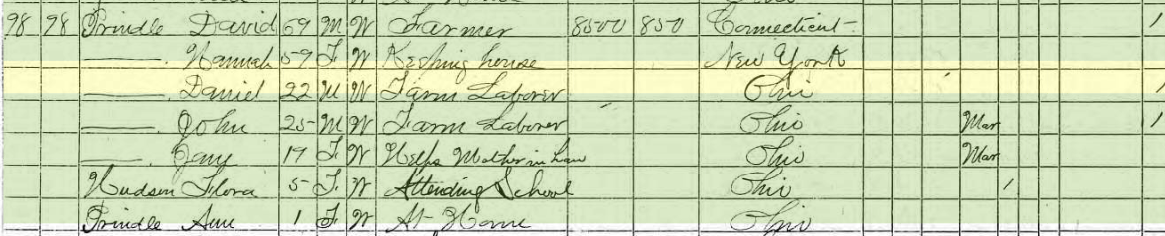 98 98 Prindle David 69 M W Farmer 8500 850 Connecticut 1
——. Hannah 59 F W Keeping house New York
——. Daniel 22 M W Farm Laborer Ohio 1
——. John 25 M W Farm Laborer Ohio Mar 1
——. Jane 19 F W Helps Mother in Law Ohio Mar
Hudson Flora 5 F W Attending School Ohio /
Prindle 1 F W At Home Ohio